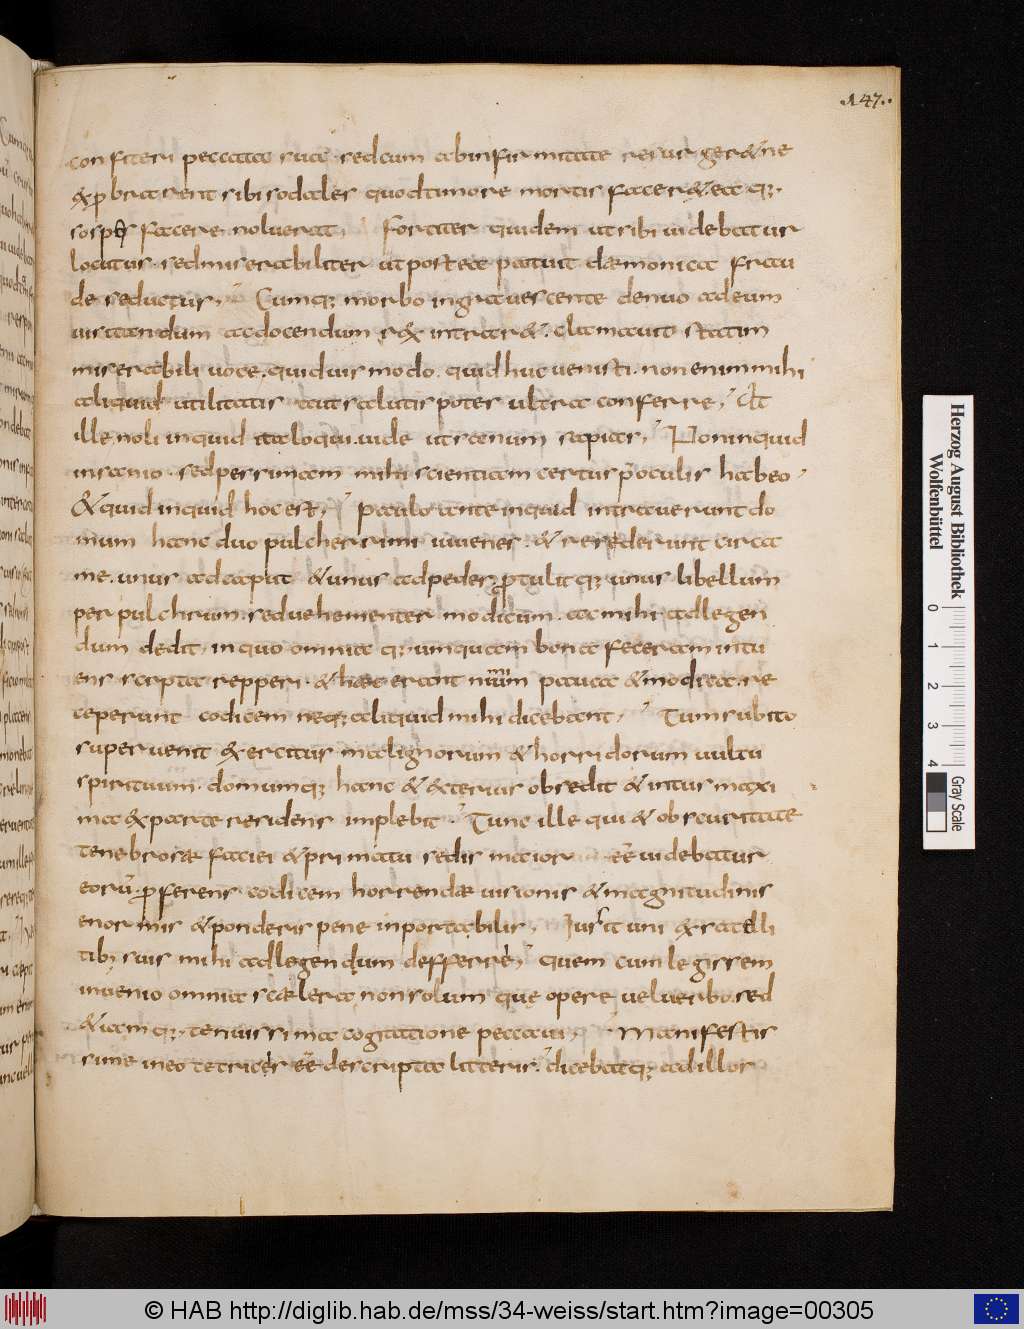 .147.
confiteri peccata sua sed cum abinfirmitate resurger& ne
&xpbrarent sibi sodales quod timore mortis facer& ea q;
sosp&s facere noluerat, Fortiter quidem ut sibi uidebatur
locutus. sed miserabiliter ut postea patuit dæmonica frau
de seductus, Cumq; morbo ingrauescente denuo ad eum
uisitandum ac docendum rex intrar&. clamauit statim
miserabili uoce. quid uis modo. quid huc uenisti. non enim mihi
aliquid utilitatis aut salutis potes ultra conferre, At
ille noli inquid ita loqui. uide ut sanum sapias, Non inquid
insanio. sed pessimam mihi scientiam certus p̄ oculis habeo
& quid inquid hoc est, paulo ante inquid intrauerunt do
mum hanc duo pulcherrimi iuuenes. & resederunt circa
me. unus ad caput & unus ad pedes. ptulitq; unus libellum
perpulchrum. sed uehementer modicum. ac mihi ad legen
dum dedit, in quo omnia q; umquam bona feceram intu
ens scripta repperi. & haec erant nimium pauca & modica. re
ceperunt codicem neq; aliquid mihi dicebant, Tum subito
superuenit exercitus malignorum & horridorum uultu
spirituum. domumq; hanc & exterius obsedit & intus maxi
ma ex parte residens implebit. Tunc ille qui & obscuritate
tenebrosæ faciei & primatu sedis maior eē uidebatur
eorū. pferens codicem horrendæ uisionis & magnitudinis
enormis & ponderis pene inportabilis, Iussit uni ex satelli
tib; suis mihi ad legendum defferre, quem cum legissem
inuenio omnia scælera non solum que opere uel uerbo. sed
& iam q; tenuissima cogitatione peccaui, Manifestis
sime in eo tetricis eē descripta litteris. dicebatq; ad illos
Herzog August Bibliothek
Wolfenbüttel
0 1 2 3 4
Gray Scale
© HAB http://diglib.hab.de/mss/34-weiss/start.htm?image=00305